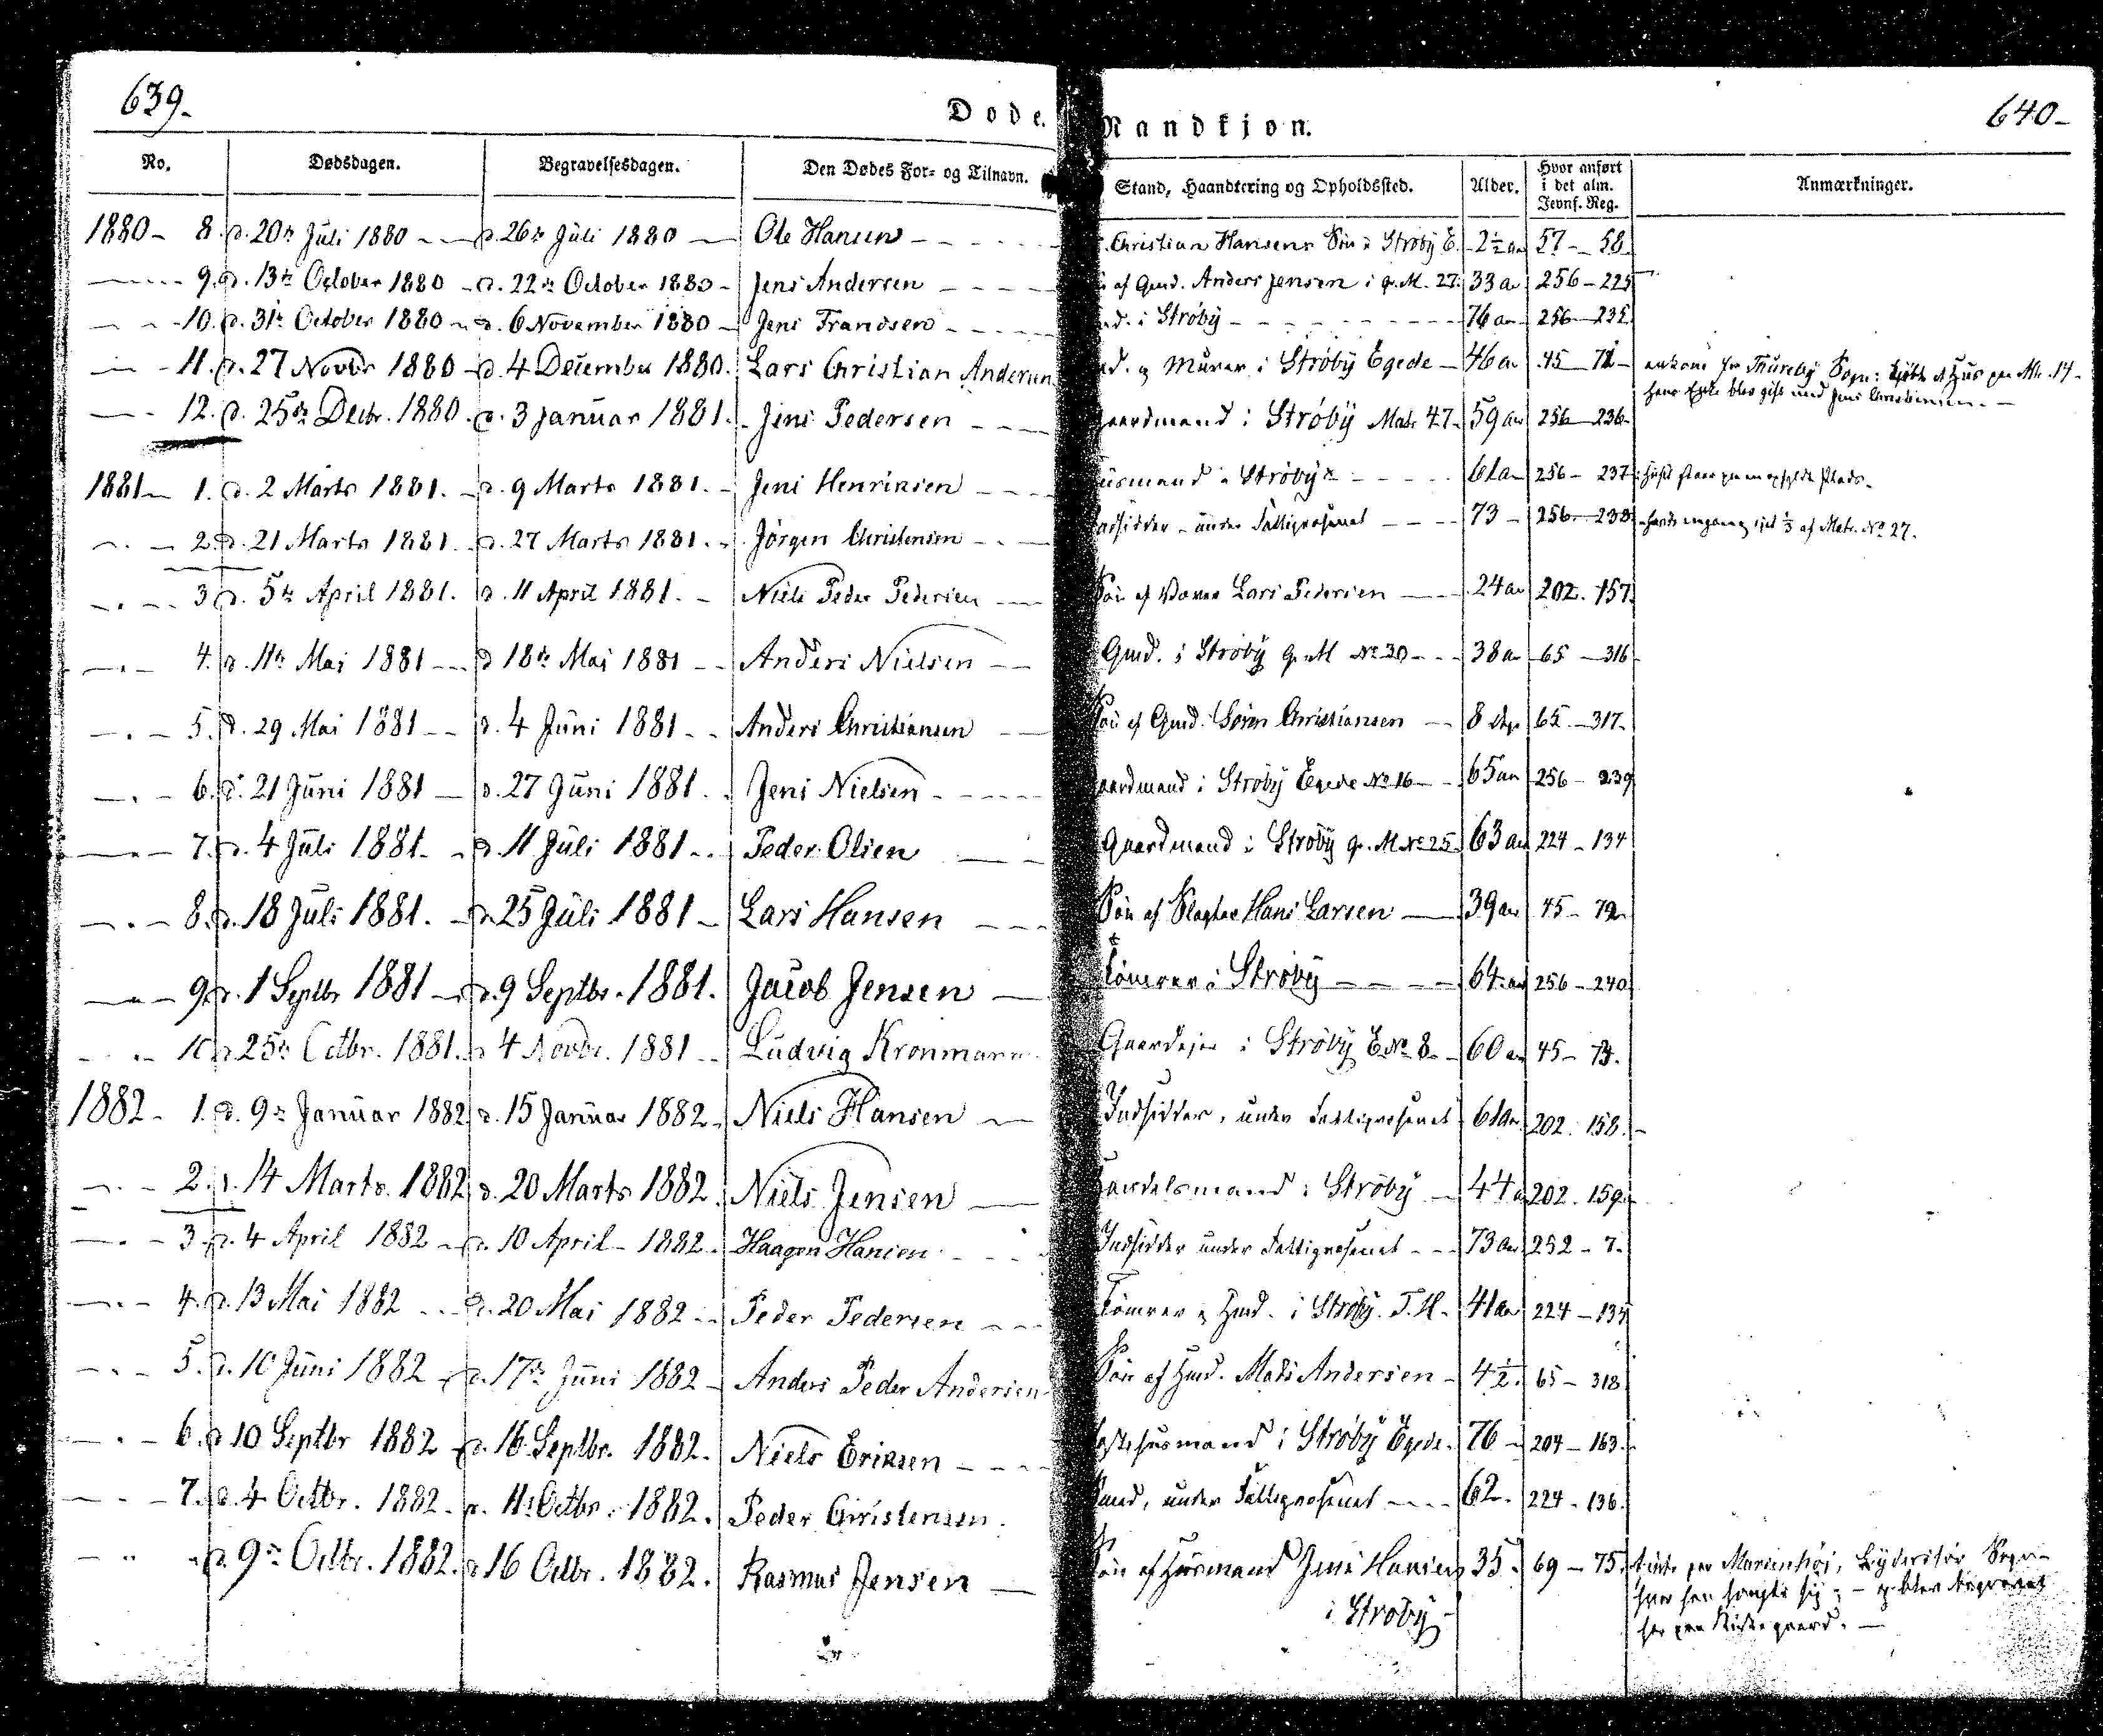 639.
640-
Døde. Mandkjøn.
No. Dødsdagen. Begravelsesdagen. Den Dødes For- og Tilnavn. Stand, Haandtering og Opholdssted. Alder. Hvor anført i det alm. Jevnf. Reg. Anmærkninger.
1880- 8. d. 20de Juli 1880 d. 26de Juli 1880 Ole Hansen Christian Hansens Søn i Strøby E. 2½ aar 57-58.
9. d. 13de October 1880 d. 22de October 1880 Jens Andersen af Gmd. Anders Jensen i g. M. 27. 33 aar 256-225
10. d. 31te October 1880 d. 6 November 1880 Jens Frandsen i Strøby 76 aar 256-235
11. d. 27 Novbr 1880 d. 4 December 1880. Lars Christian Andersen og Murer i Strøby Egede 46 aar 45-71 ankom fra Thureby Sogn: kjøbte et Huus paa Mtr. 14-
hans Enke blev gift med Jens Christensen.
12. d. 25de Decbr. 1880. d. 3 Januar 1881. Jens Pedersen Gaardmand i Strøby Matr. 47. 59 aar 256-236-
1881- 1. d. 2 Marts 1881. d. 9 Marts 1881. Jens Henriksen Huusmand i Strøby 61 aar 256-237
2. d. 21 Marts 1881. d. 27 Marts 1881. Jørgen Christensen Indsidder under Fattigvæsenet 73 256-238 havde engang ejet ⅓ af Matr. No 27.
3. d. 5te April 1881. d. 11 April 1881. Niels Peder Pedersen Søn af Væver Lars Pedersen 24 aar 202-157.
4. d. 11te Mai 1881 d. 18de Mai 1881 Anders Nielsen Gmd. i Strøby g. M No 30 38 aar 65-316
5. d. 29 Mai 1881 d. 4 Juni 1881 Anders Christiansen Søn af Gmd. Søren Christiansen 8 65-317.
6. d. 21 Juni 1881 d. 27 Juni 1881. Jens Nielsen Gaardmand i Strøby Egede No 16 65 aar 256-239
7. d. 4 Juli 1881. d. 11 Juli 1881. Peder Olsen Gaardmand i Strøby g. M. No 25 63 aar 224-134
8. d. 18 Juli 1881. d. 25 Juli 1881 Lars Hansen Søn af Slagter Hans Larsen 39 aar 45-72
9. d. 1 Septbr 1881 d. 9 Septbr. 1881. Jacob Jensen Tømrer i Strøby 64 aar 256-240
10. d. 25de Octbr. 1881. d. 4 Novbr. 1881 Ludvig Kronmann Gaardejer i Strøby E. No 8. 60 aar 45-73.
1882- 1. d. 9de Januar 1882 d. 15 Januar 1882 Niels Hansen Indsidder, under Fattigvæsenet 61 aar 202-158.
2. d. 14 Marts 1882 d. 20 Marts 1882. Niels Jensen Handelsmand i Strøby 44 a 202-159
3. d. 4 April 1882 d. 10 April 1882. Haagen Hansen Indsidder under Fattigvæsenet 73 aar 252-7.
4. d. 13 Mai 1882 d. 20 Mai 1882 Peder Pedersen Tømrer og Hmd. i Strøby T. H. 41 aar 224-135
5. d. 10 Juni 1882 d. 17de Juni 1882 Anders Peder Andersen Søn af Hmd. Mads Andersen 4½ 65-318
6. d. 10 Septbr 1882 d. 16 Septbr. 1882. Niels Eriksen huusmand i Strøby Egede. 76 204-163.
7. d. 4 Octbr. 1882. d. 11 Octbr. 1882. Peder Christensen. under Fattigvæsenet 62. 224-136.
d. 9de Octbr. 1882. d. 16 Octbr. 1882. Rasmus Jensen Søn af Huusmand Jens Hansen 35. 69-75. tiente paa Marienhøi, Lyderslev Sogn
i Strøby
hvor han hængte sig; - og blev begravet
her paa Kirkegaard.